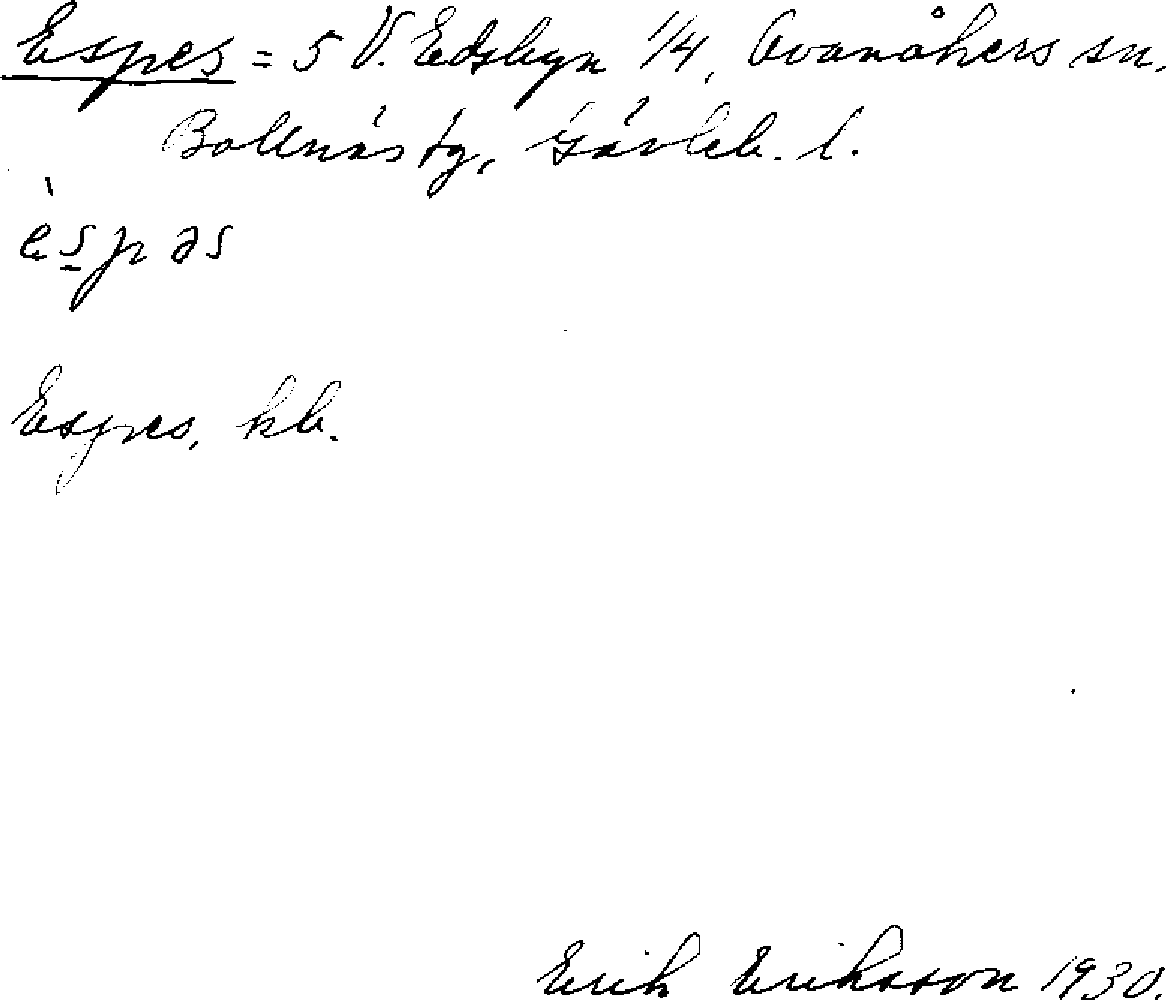 Espes = 5 V. Edsbyn 1/4, Ovanåkers sn.
Bollnäs tg, Gävleb. l.
ès̲pəs
Espes, kb.
Erik Eriksson 1930.